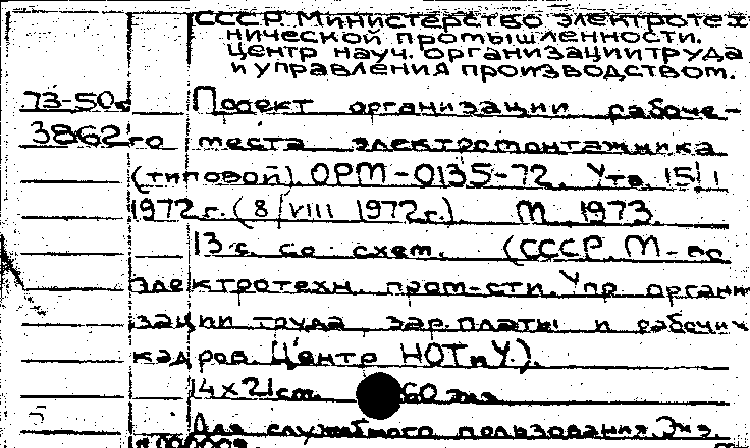 СССР. Министерство электротех
нической промышленности.
Центр науч. организации труда
и управления производством.
73-50
3862
Проект организации рабоче-
го места электромонтажника
(типовой). ОРМ-0135-72. Утв. 15/I
1972 г. (8/VIII 1972 г.). М 1973.
13 с. со схем. (СССР. М-во
электротехн. пром-сти. Упр. органи
зации труда зар. платы и рабочих
кадров. Центр НОТиУ.).
14×21 см. 60 экз.
5
Для служебного пользования. Экз.